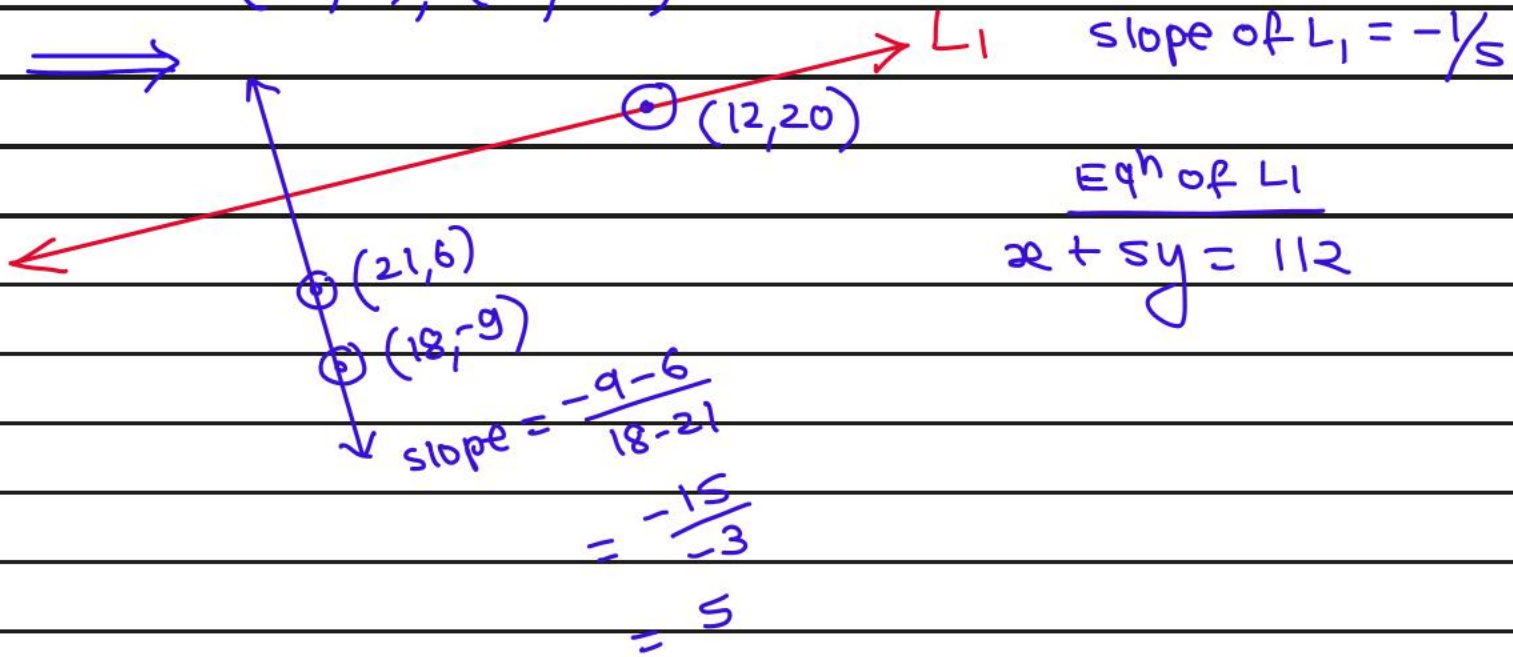 L1
slope of L1 = -1/5
(12,20)
Eqn of L1
x + 5y = 112
(21,6)
(18,-9)
slope = -9-6/18-21
= -15/-3
= 5